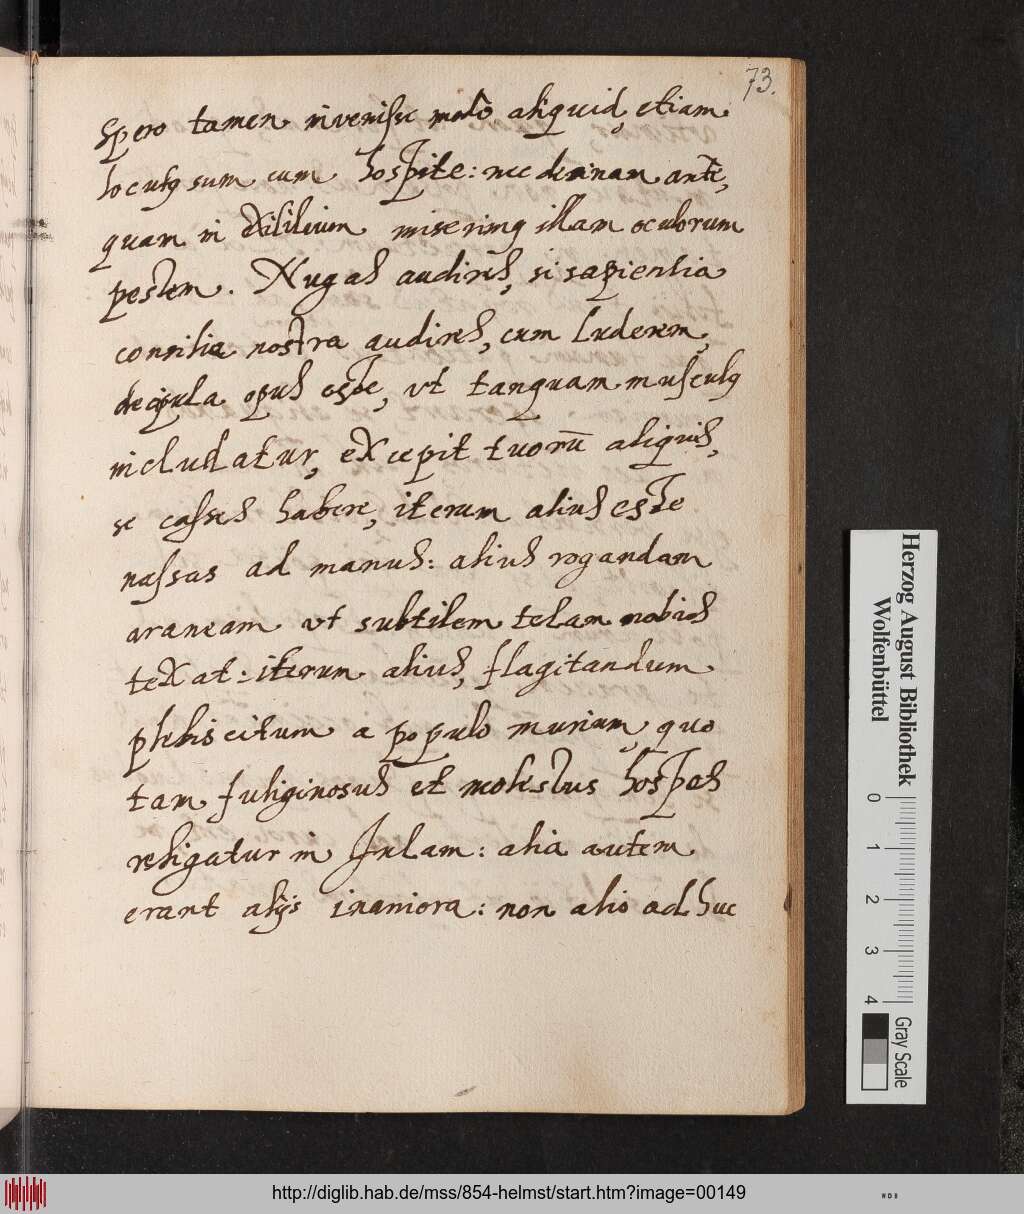 73.
spero tamen invenisse modo aliquid, etiam
locutꝰ sum cum hospite: nec deninam ante,
quam in exililium miserimꝰ illam oculorum
pestem. Nugas audires, si sapientia
consilia nostra audires, cum luderem,
decipula opus esse, vt tanquam musculꝰ
includatur, excepit tuorū aliquis,
se casses habere, iterum alius esse
nassas ad manus: alius rogandam
araneam vt subtilem telam nobis
texat: iterum alius, flagitandum
plebiscitum a populo murium, quo
tam fuliginosus et molestus hospes
religatur in Inlam: alia autem
erant alijs inaniora: non alio adhuc
Herzog August Bibliothek
Wolfenbüttel
0 1 2 3 4
Gray Scale
http://diglib.hab.de/mss/854-helmst/start.htm?image=00149